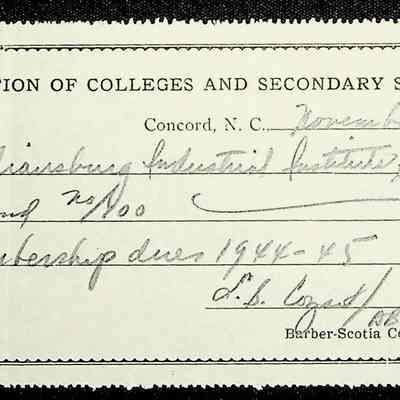 TION OF COLLEGES AND SECONDARY S
Concord, N. C., Novemb
iansburg Industrial Institute
nd no/100
bership dues 1944-45
L. S. Cozart/
AB
Barber-Scotia Co